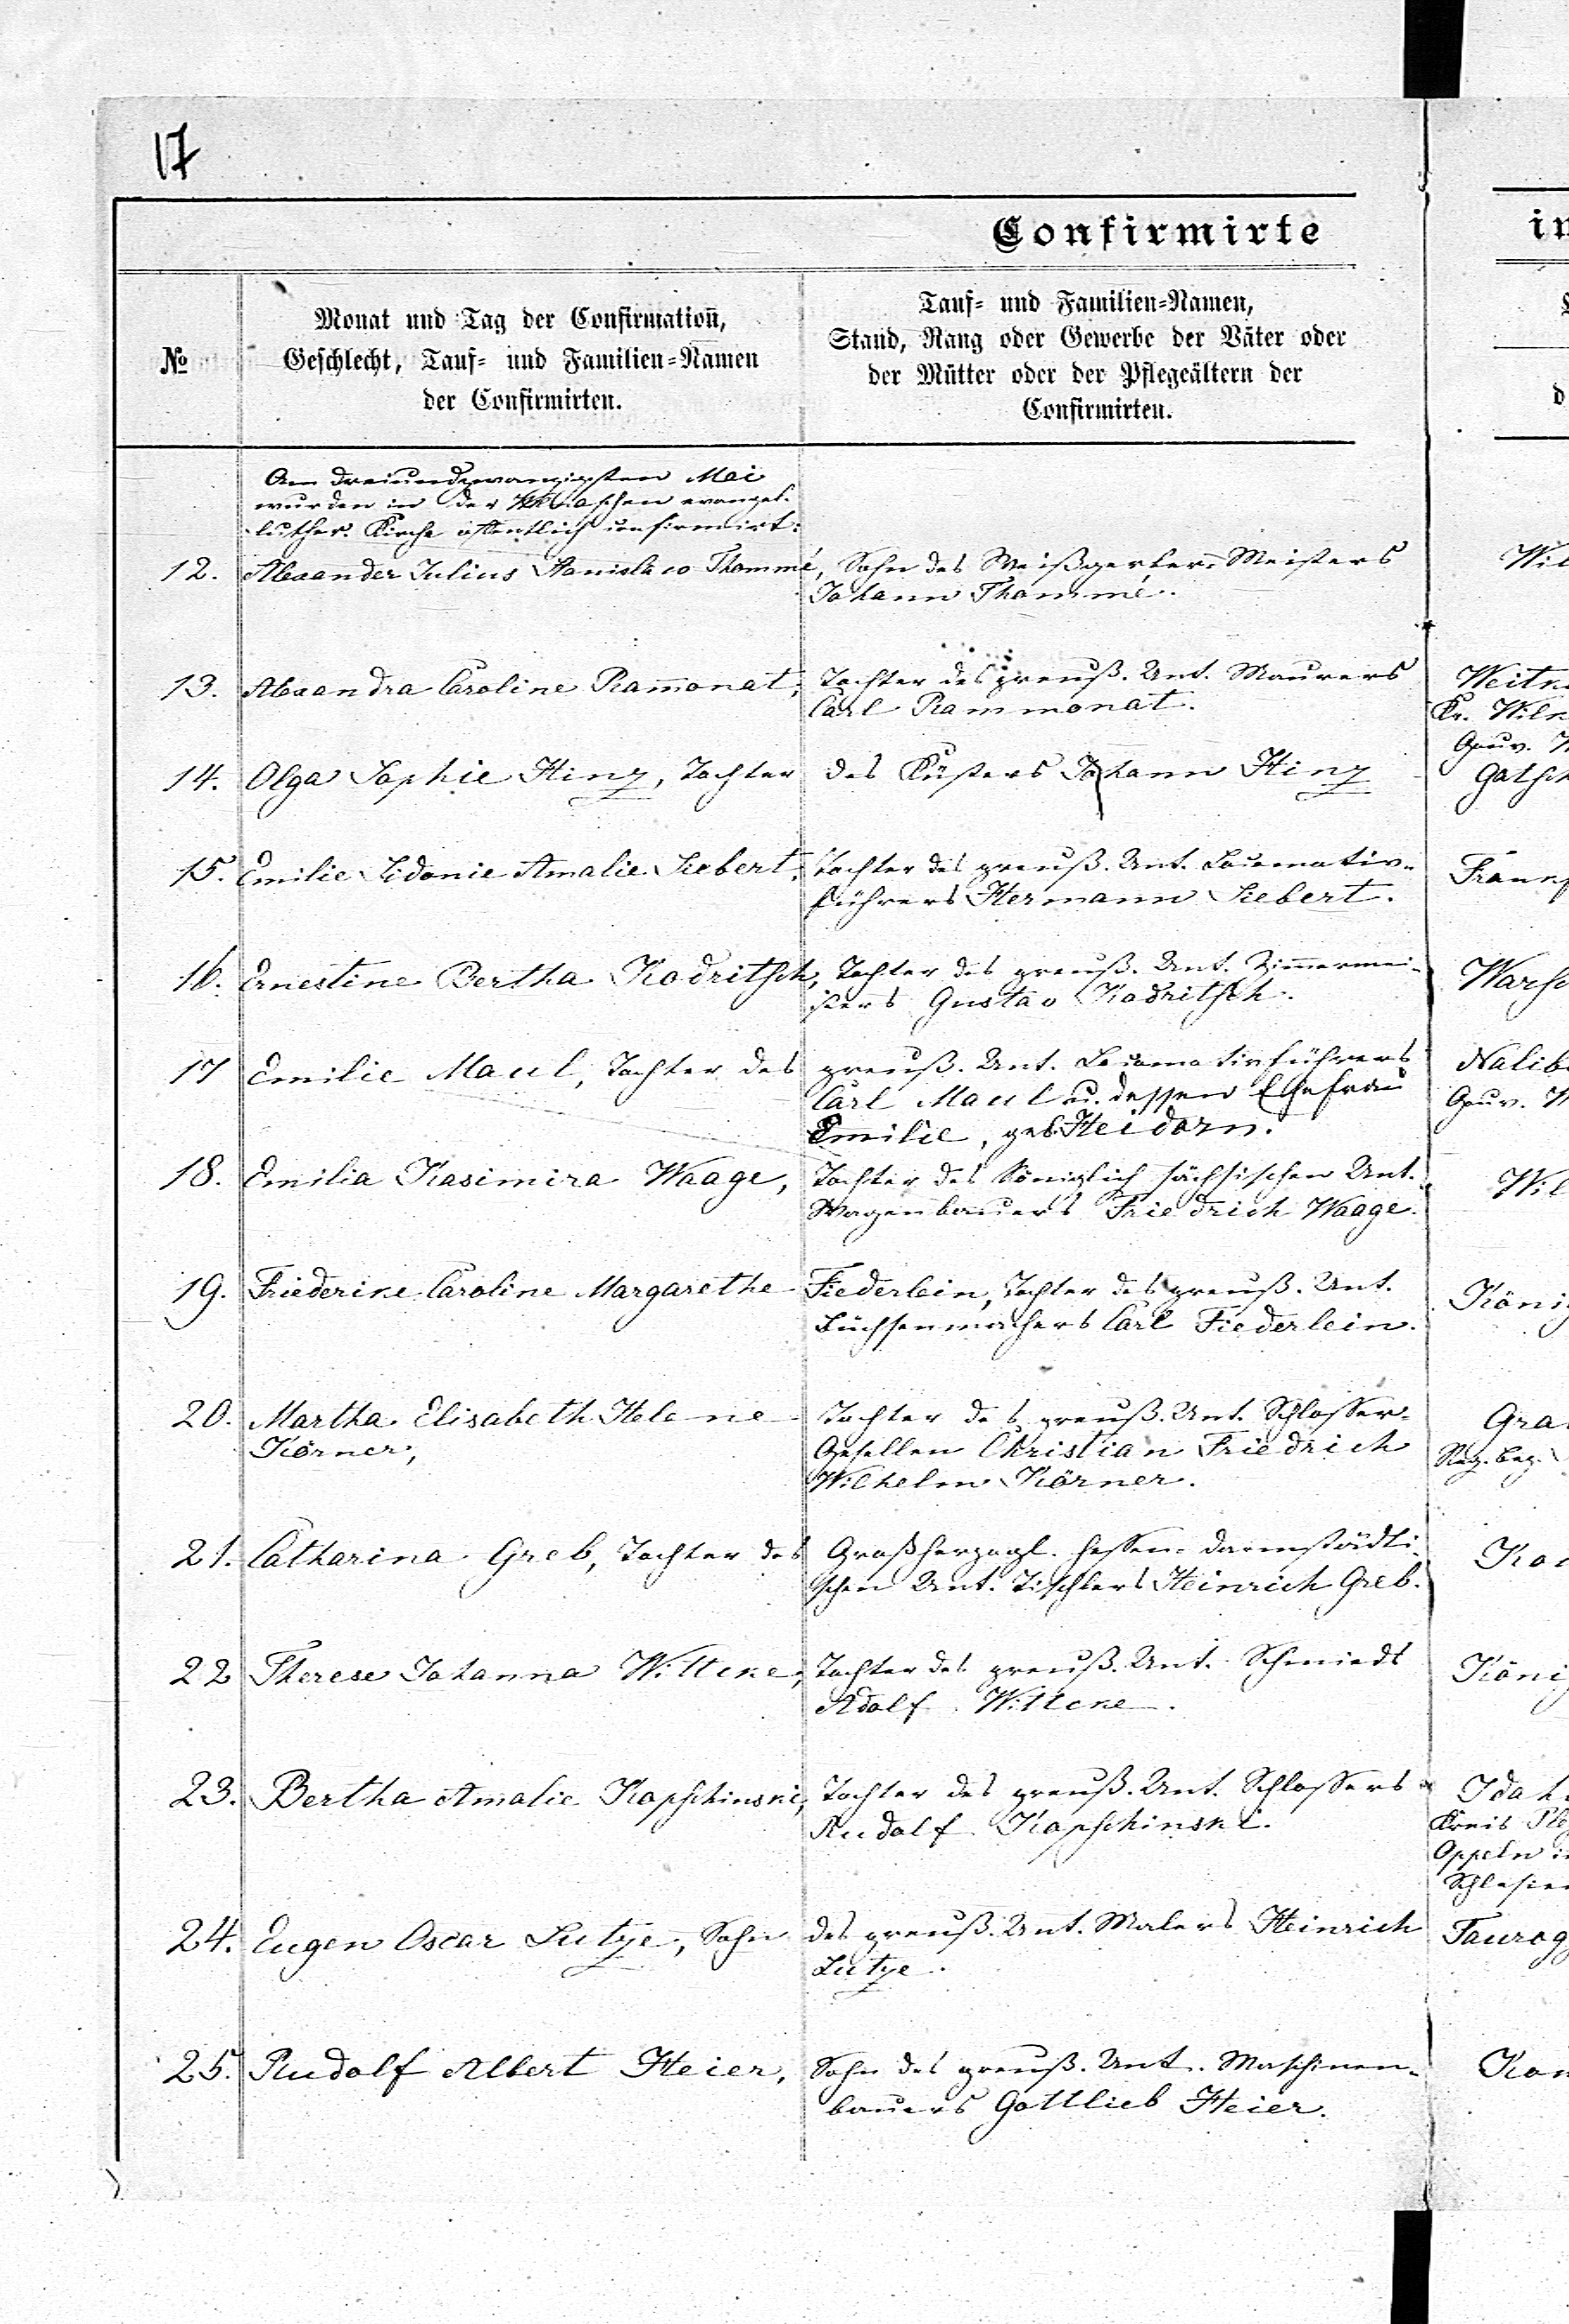 17
Confirmirte
in
№
Monat und Tag der Confirmation,
Geschlecht, Tauf- und Familien-Namen
der Confirmirten.
Tauf- und Familien-Namen,
Stand, Rang oder Gewerbe der Väter oder
der Mütter oder der Pflegeältern der
Confirmirten.
d
Am dreiundzwanzigsten Mai
wurden in der evangel.
luther. Kirche öffentlich confirmirt:
12. Alexander Julius Thommé, Sohn des Weißgerber-Meisters
Johann Thommé.
Wil
13. Alexandra Caroline Ram̄onat, Tochter des preuß. Unt. Maurers
Carl Rammonat.
Weitk
Kr. Wiln
Gouv.
14. Olga Sophie Hinz, Tochter des Küsters Johann Hinz
Gatsch
15. Emilie Sidonie Amalie Siebert, Tochter des preuß. Unt. Locomotiv-
führers Hermann Siebert.
Frankf
16. Ernestine Bertha Kodritsch, Tochter des preuß. Unt. Zim̄ermei-
sters Gustav Kodritsch.
Warsc
17 Emilie Maul, Tochter des preuß. Unt. Locomotivführers
Carl Maul u. dessen Ehefrau
Emilie, geb. Heidorn.
Nalib
Gouv. W
18. Emilia Kasimira Waage, Tochter des Königlich sächsischen Unt.
Wagenbauers Friedrich Waage.
Wil
19. Friederike Caroline Margarethe Fiederlein, Tochter des preuß. Unt.
Büchsenmachers Carl Fiederlein.
König
20. Martha Elisabeth Helene Tochter des preuß. Unt. Schlosser-
Körner, Gesellen Christian Friedrich
Wilhelm Körner.
Gra
Reg. bez.
21. Catharina Greb, Tochter des Großherzogl. hessen-darmstädti-
schen Unt. Tischlers Heinrich Greb.
22 Therese Johanna Wittcke, Tochter des preuß. Unt. Schmieds
Adolf Wittcke.
König
23. Bertha Amalie Kopschinski, Tochter des preuß. Unt. Schlossers
Rudolf Kopschinski.
Idah
Kreis Ple
Oppeln in
Schlesien
24. Eugen Oscar Lutze, Sohn des preuß. Unt. Malers Heinrich
Lutze.
Taurog
25. Rudolf Albert Heier, Sohn des preuß. Unt. Maschinen-
bauers Gottlieb Heier.